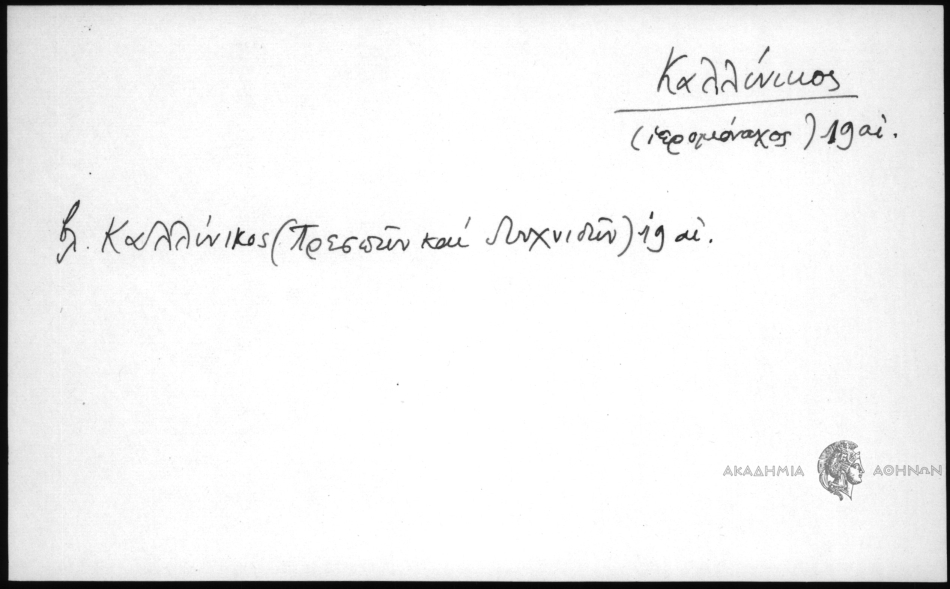 Καλλίνικος
(ἱερομόναχος) 19 αἰ.
βλ. Καλλίνικος (Πρεσπῶν καί Λυχνιδῶν) 19 αἰ.
ΑΚΑΔΗΜΙΑ ΑΘΗΝΩΝ